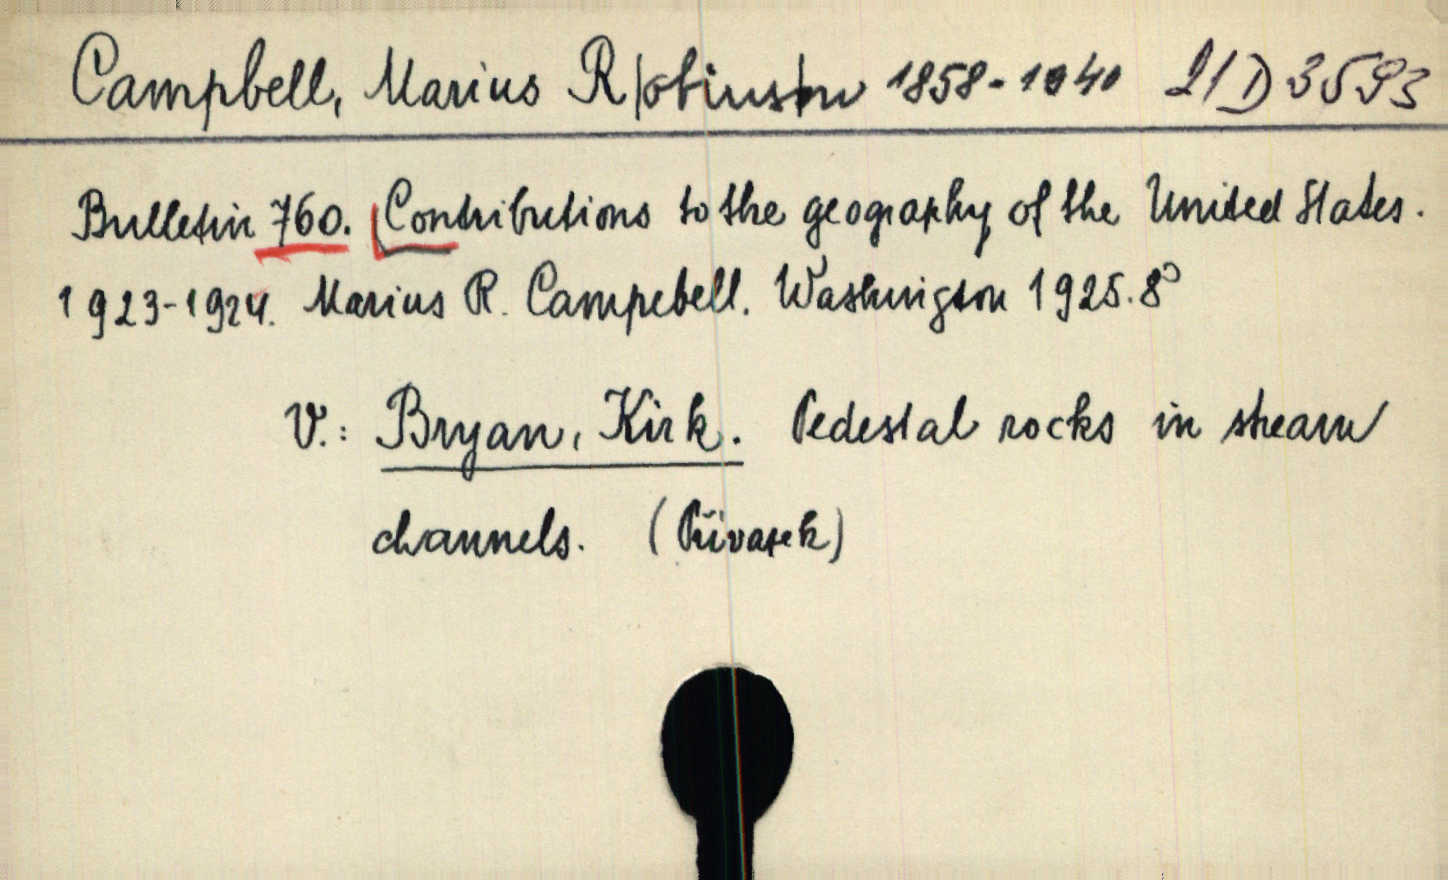 Campbell, Marius R|obinson 1858-1940 21 D 3593
Bulletin 760. [Contributions to the geography of the United States.
1923-1924. Marius R. Campebell. Washington 1925. 8°
V.: Bryan, Kirk. Pedestal rocks in stream
channels. (Přívazek)